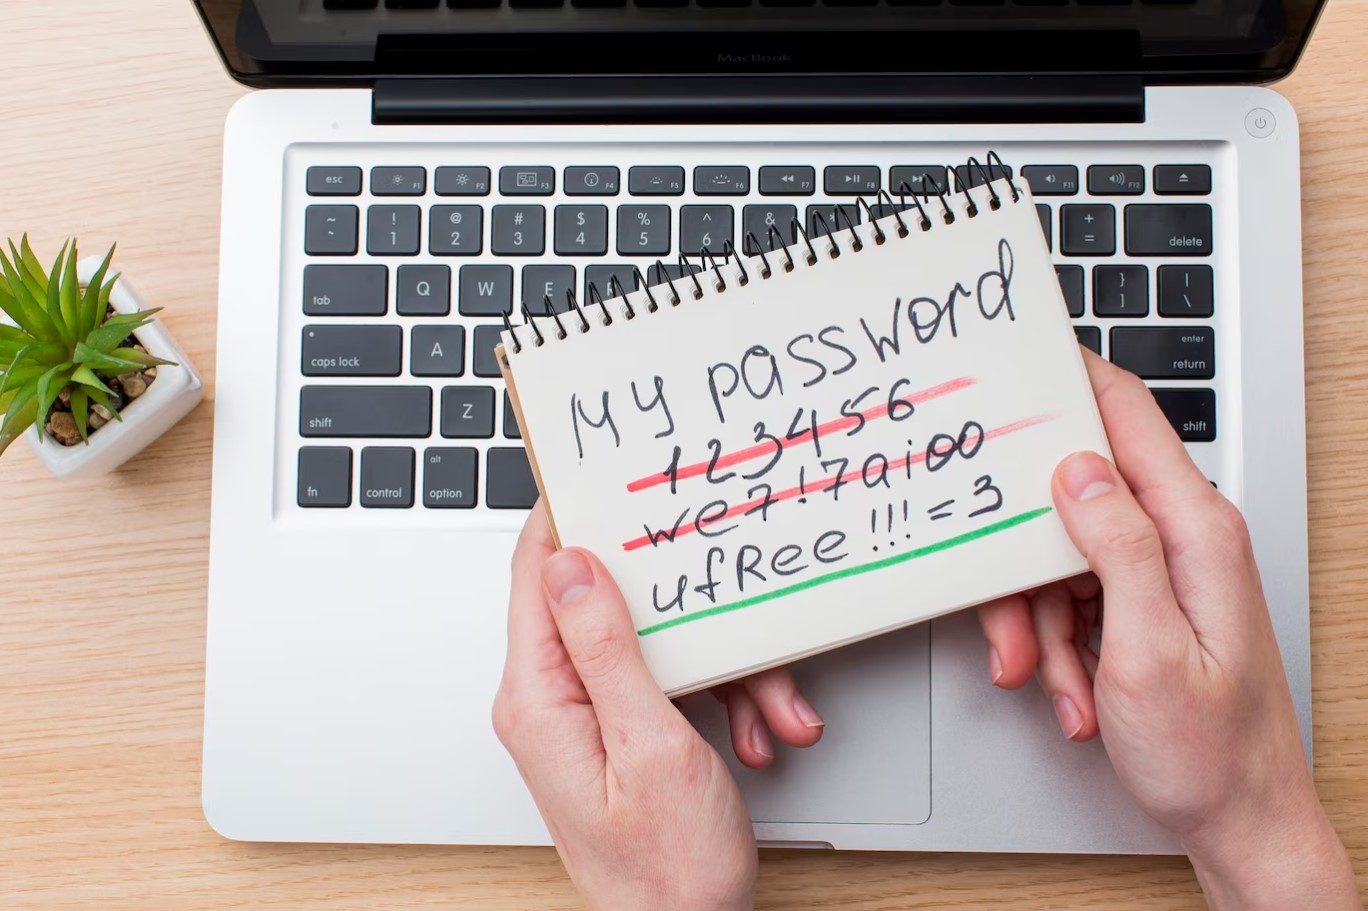 MacBook
esc F1 F2 F3 F4 F5 F6 F7 F8 F11 F12
~ ` ! 1 @ 2 # 3 $ 4 % 5 ^ 6 & * + = delete
tab Q W E R } ] | \
caps lock A enter return
shift Z shift
fn control alt option
My password
123456
we7!7aioo
ufRee!!!=3